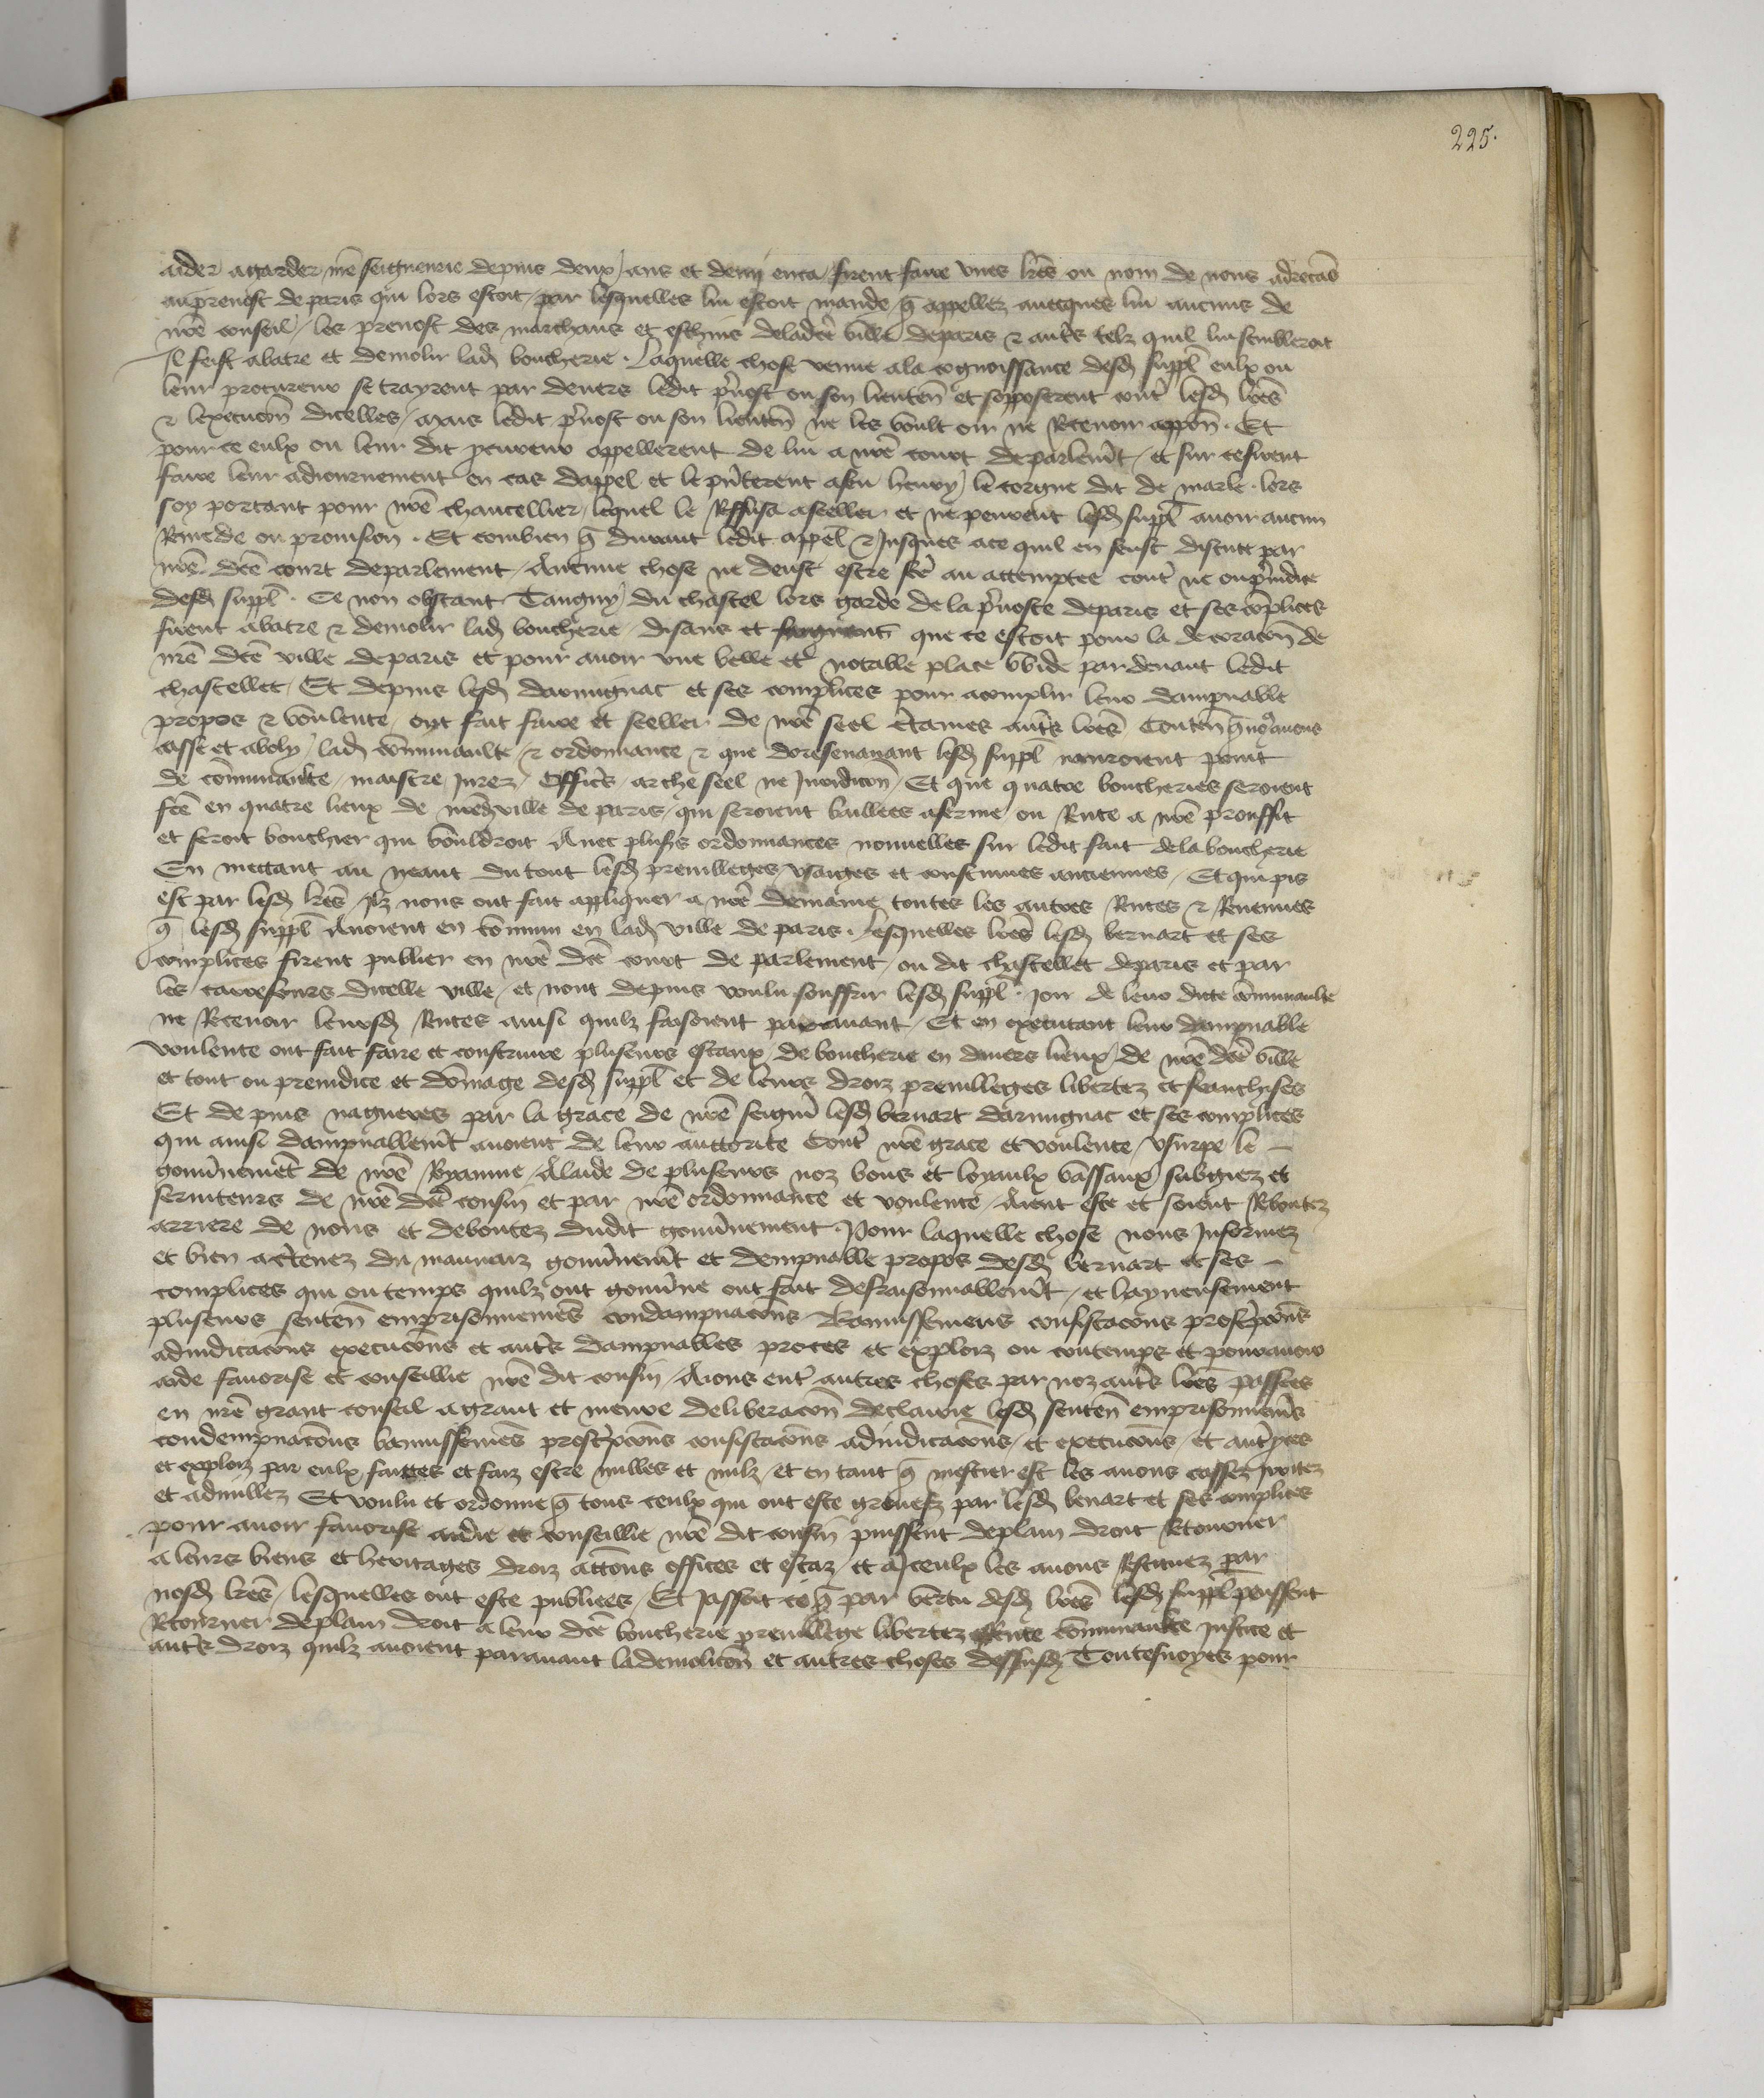 225.
aider agarder nrē seigneurie depuis deux ans et demi enca firent faire unes lrēs ou nom de nous adrecãs
au prevost de paris qui lors estoit par lesquelles lui estoit mande q̄ appellez avecques lui aucuns de
nrē conseil les prevost des marchans et eschevins deladcē ville deparis & autrēs telz quil lui sembleroit
Il feist abatre et demolir lad boucherie . Laquelle chose venue ala cognoissance desd suppl eulx ou
leur procureur se trayrent par devers ledit pvost ou son lieuten et sopposerent contr̄ lesd lrēs
& lexecucōn dicelles / mais ledit pvost ou son lieuten ne les voult oir ne Recevoir apposn . Et
pour ce eulx ou leur dit procureur appellerent de lui a nrē court deparlemt / et sur ce firent
faire leur adiournement en cas dappel et le pn̄terent afeu henry le corgne dit de marle lors
soy portant pour nrē chancellier lequel le Reffusa aseeller et ne peurent lesd suppl avoir aucun
Remede ou provision . Et combien q̄ durant ledit appel & Jusques ace quil en feust discute par
nrē dcē court deparlement / Aucune chose ne deust estre fcē au attemptee contr̄ ne ou pr̄eiudice
desd suppl . Ce non obstant Tanguy du chastel lors garde de la pvoste deparis et ses cōplices
firent abatre & demolir lad boucherie disans et que ce estoit pour la decoracōn de
nrē dcē ville deparis et pour avoir une belle et notable place vbide par devant ledit
chastellet / Et depuis lesd darmignac et ses complices pour acomplir leur dampnable
propos & voulente ont fait faire et seeller de nrē seel c̄taines autr̄s lrēs Conten q̄ no9 avons
casse et aboly lad cōmunaulte & ordonnance & que doresenavant lesd suppl nauroient point
de cōmunaulte / maistre Jurez / Offic̄s / arche seel ne Juridicōn / Et que quatre boucheries seroient
fcēs en quatre lieux de nrēd ville de paris / qui seroient baillees aferme ou Rente a nrē prouffit
et seroit bouchier qui vouldroit Avec plusrs ordonnances nouvelles sur ledit fait dela boucherie
En mectant au neant du tout lesd previlleges / usaiges et coustumes anciennes / Et qui pis
est par lesd lrēs / Jlz nous ont fait appliquer a nrē demaine toutes les autres Rentes & Revenues
q̄ lesd suppl Avoient en cōmun en lad ville de paris . Lesquelles lrēs lesd bernart et ses
complices firent publier en nrē dcē court de parlement / ou dit chastellet deparis et par
les carrefours dicelle ville / et nont depuis voulu souffrir lesd suppl . Joir de leur dicte cōmunaulte
ne Recevoir leursd Rentes ainsi quilz faisoient paravant / Et en executant leur dampnable
voulente ont fait faire et construire pluseurs estaux de boucherie en divers lieux de nrē dcē ville
et tout ou preiudice et dōmage desd suppl et de leurs droiz previlleges libertez et franchises
Et depuis nagueres par la grace de nrē seignr lesd bernart darmignac et ses complices
qui ainsi dampnablemt avoient de leur auttorite Contr̄ nrē grace et voulente / Usurpe le
gouv̄nemēt de nrē Royaume / Alaide de pluseurs noz bons et loyaulx vassaux / subgiez et
serviteurs de nrē dcē cousin et par nrē ordonnance et voulente / Aient este et soient Reboutez
arriere de nous et deboutez dudit gouv̄nement . Pour laquelle chose nous Jnformez
et bien ac̄tenez du mauvaiz gouv̄nemt et dempnable propos desd bernart et ses
complices qui ou temps quilz ont gouv̄ne ont fait desraisonnablemt / et hayneusement
pluseurs senten emprisonnemēs condampnacōns / Bannissemens confiscacōns proscripcōns
adiudicacōns execucōns et autr̄s dampnables proces et exploiz ou contemps et pour avoir
aide favorise et conseillie nrē dit cousin / Aions entr̄ autres choses par noz autr̄s lrēs passees
en nrē grant conseil agrant et meure deliberacōn declaire lesd senten emprisonnemēs
condempnacōns bannissemēs proscripcōns confiscacōns adiudicacōns / et execucōns / et autr̄ces
et exploiz par eulx faittes et faiz estre nulles et nulz / et en tant q̄ mestier est les avons cassez Jrritez
et adnullez Et voulu et ordonne q̄ tous ceulx qui ont este grevez par lesd benart et ses complices
pour avoir favorise aidie et conseillie nrē dit cousin puissent deplain droit Retourner
a leurs biens et heritages droiz accōns offices et estaz / et a Jceulx les avons Restituez par
nosd lrēs / lesquelles ont este publiees / Et Jassoit ce q̄ par vertu desd lrēs lesd suppl puissent
Retourner deplain droit a leur dcē boucherie previllege libertez Rente cōmunaulte Justice et
autr̄s droiz quilz avoient paravant la demolicōn et autres choses dessusd Toutesvoyes pour